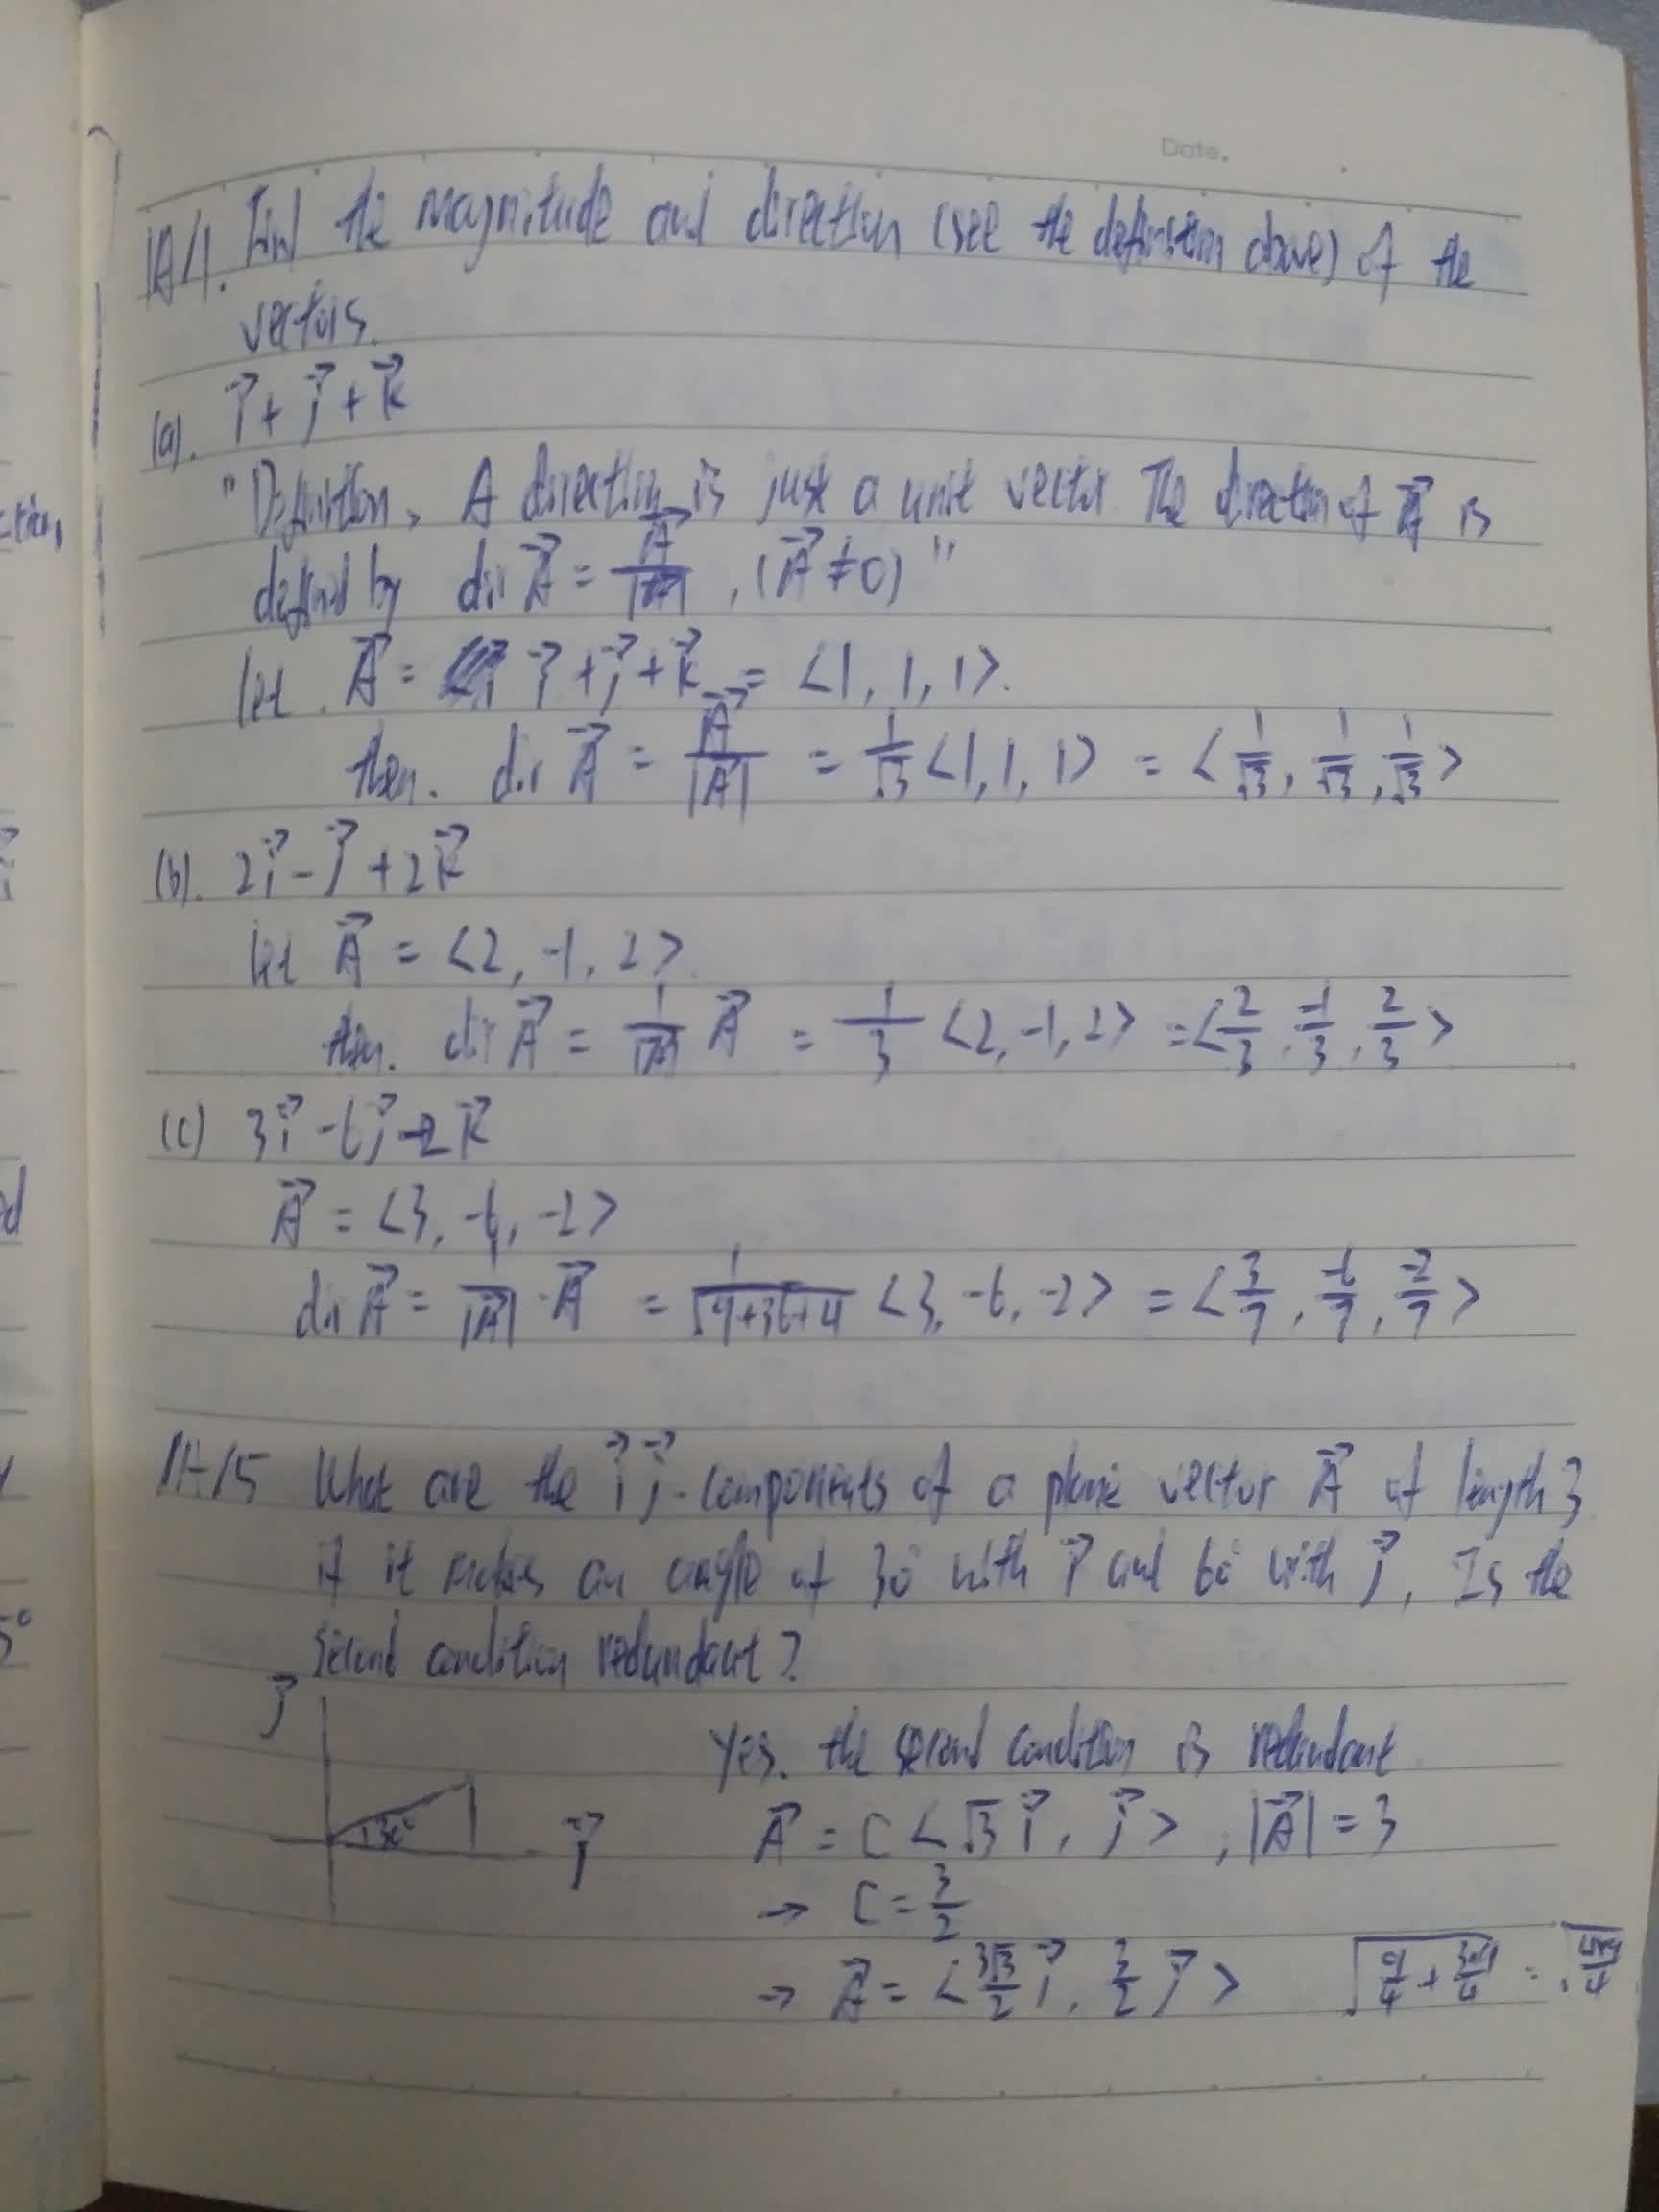 Date.
1A/1. Find the magnitude and direction (see the definition above) of the
vectors.
(a). i⃗ + j⃗ + k⃗
"Definition, A direction is just a unit vector. The direction of A⃗ is
defined by dir A⃗ = A⃗/|A⃗| , (A⃗ ≠ 0) "
let A⃗ = i⃗ + j⃗ + k⃗ = <1, 1, 1>.
then. dir A⃗ = A⃗/|A⃗| = 1/√3 <1, 1, 1> = <1/√3, 1/√3, 1/√3>
(b). 2i⃗ - j⃗ + 2k⃗
let A⃗ = <2, -1, 2>.
then. dir A⃗ = 1/|A⃗| A⃗ = 1/3 <2, -1, 2> = <2/3, -1/3, 2/3>
(c) 3i⃗ - 6j⃗ - 2k⃗
A⃗ = <3, -6, -2>
dir A⃗ = 1/|A⃗| · A⃗ = 1/√9+36+4 <3, -6, -2> = <3/7, -6/7, -2/7>
1A-/5 What are the i⃗ j⃗ - components of a plane vector A⃗ of length 3
if it makes an angle of 30° with i⃗ and 60° with j⃗, Is the
second condition redundant?
j⃗
30°
i⃗
Yes. the second condition is redundant
A⃗ = C <√3 i⃗, j⃗> , |A⃗| = 3
→ C = 3/2
→ A⃗ = <3√3/2 i⃗, 3/2 j⃗>